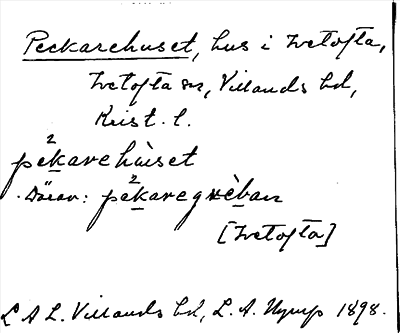 Peckarehuset, hus i Ivetofta,
Ivetofta sn, Villands hd,
Krist. l.
pe²karehùset
Därav: pä²karegrèban
[Ivetofta]
L A L. Villands hd, L. A. Nyrup 1898.